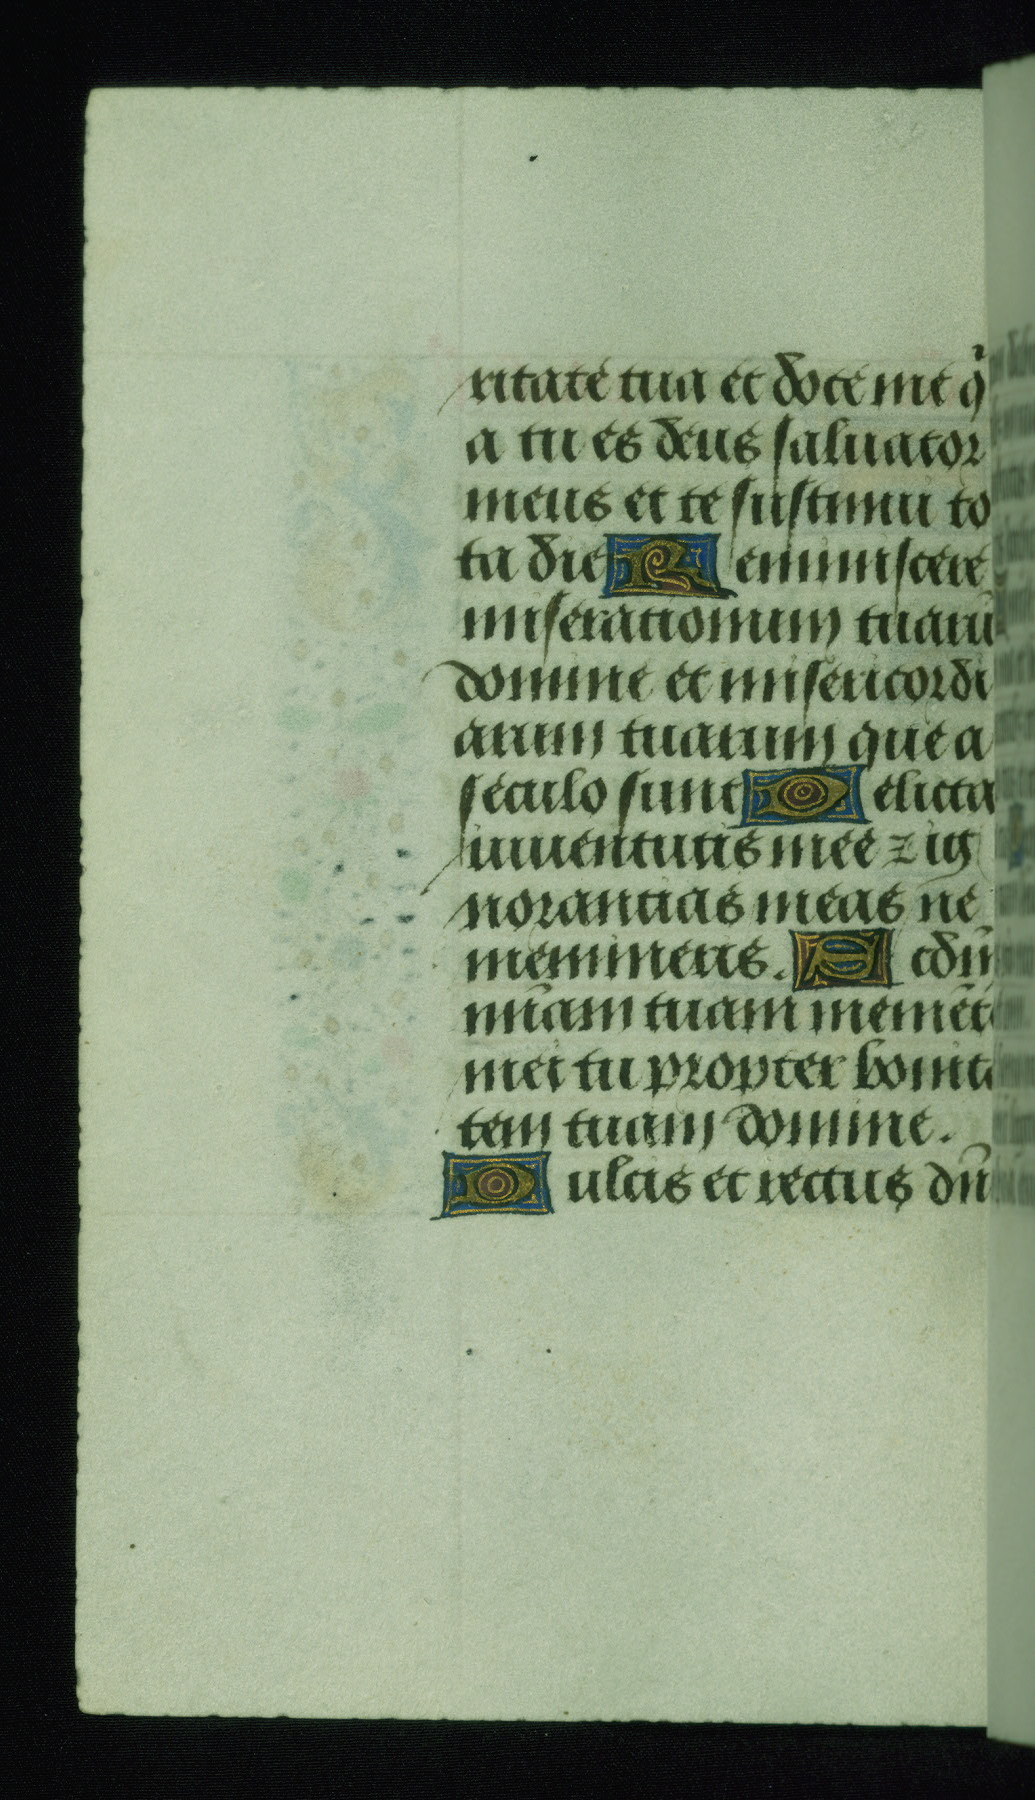 ritate tua et doce me q̇
a tu es deus saluator
meus et te sustinui to
ta die Reminiscere
miserationum tuarū
domine et misericordi
arum tuarum que a
seculo sunt Delicta
iuuentutis mee ⁊ ig
norantias meas ne
memineris. Scdm̄
mīam tuam memēt
mei tu propter bonit
tem tuam domine.
Dulcis et rectus dn̄